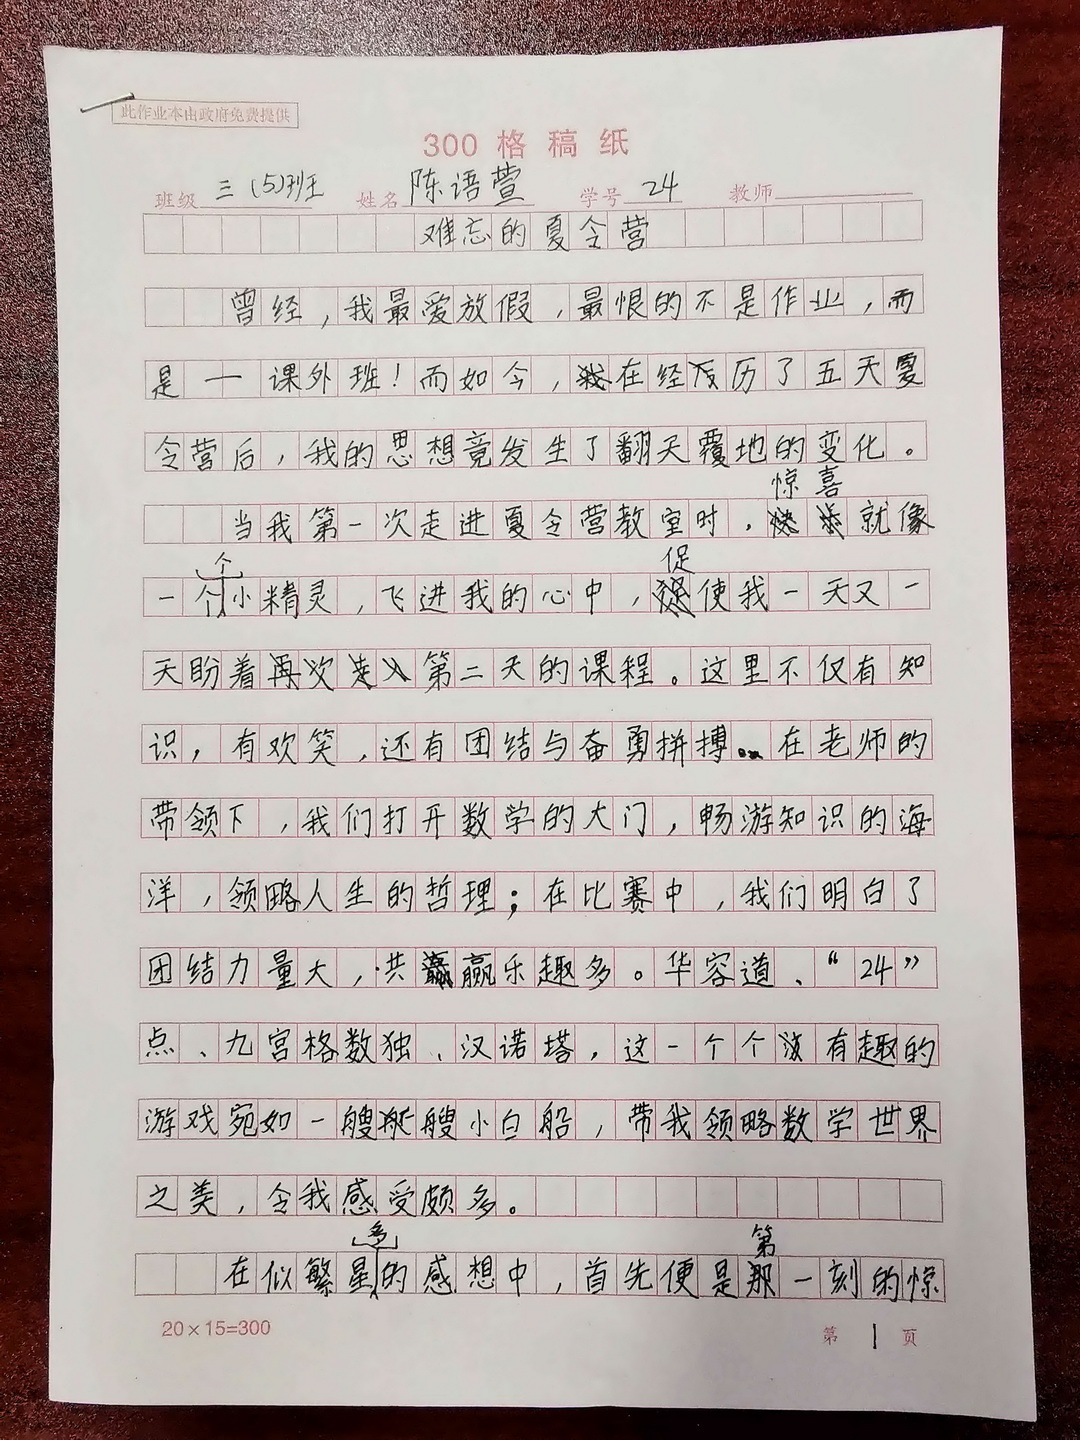 此作业本由政府免费提供
300 格 稿 纸
班级 三(5)班 姓名 陈语萱 学号 24 教师
难忘的夏令营
曾经，我最爱放假，最恨的不是作业，而
是一课外班！而如今，在经历了五天夏
令营后，我的思想竟发生了翻天覆地的变化。
当我第一次走进夏令营教室时，惊喜就像
一个个小精灵，飞进我的心中，促使我一天又一
天盼着第二天的课程。这里不仅有知
识，有欢笑，还有团结与奋勇拼搏。在老师的
带领下，我们打开数学的大门，畅游知识的海
洋，领略人生的哲理；在比赛中，我们明白了
团结力量大，共赢乐趣多。华容道、“24”
点、九宫格数独、汉诺塔，这一个个有趣的
游戏宛如一艘艘小白船，带我领略数学世界
之美，令我感受颇多。
在似繁星多的感想中，首先便是第一刻的惊
20×15=300
第 1 页